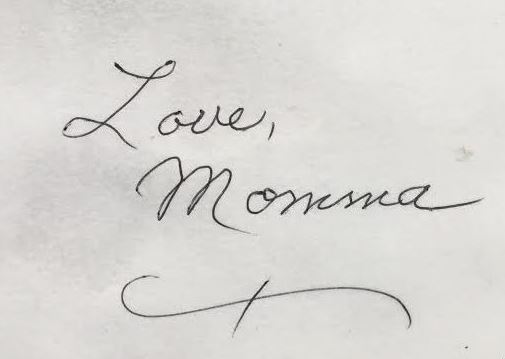 Love,
Momma